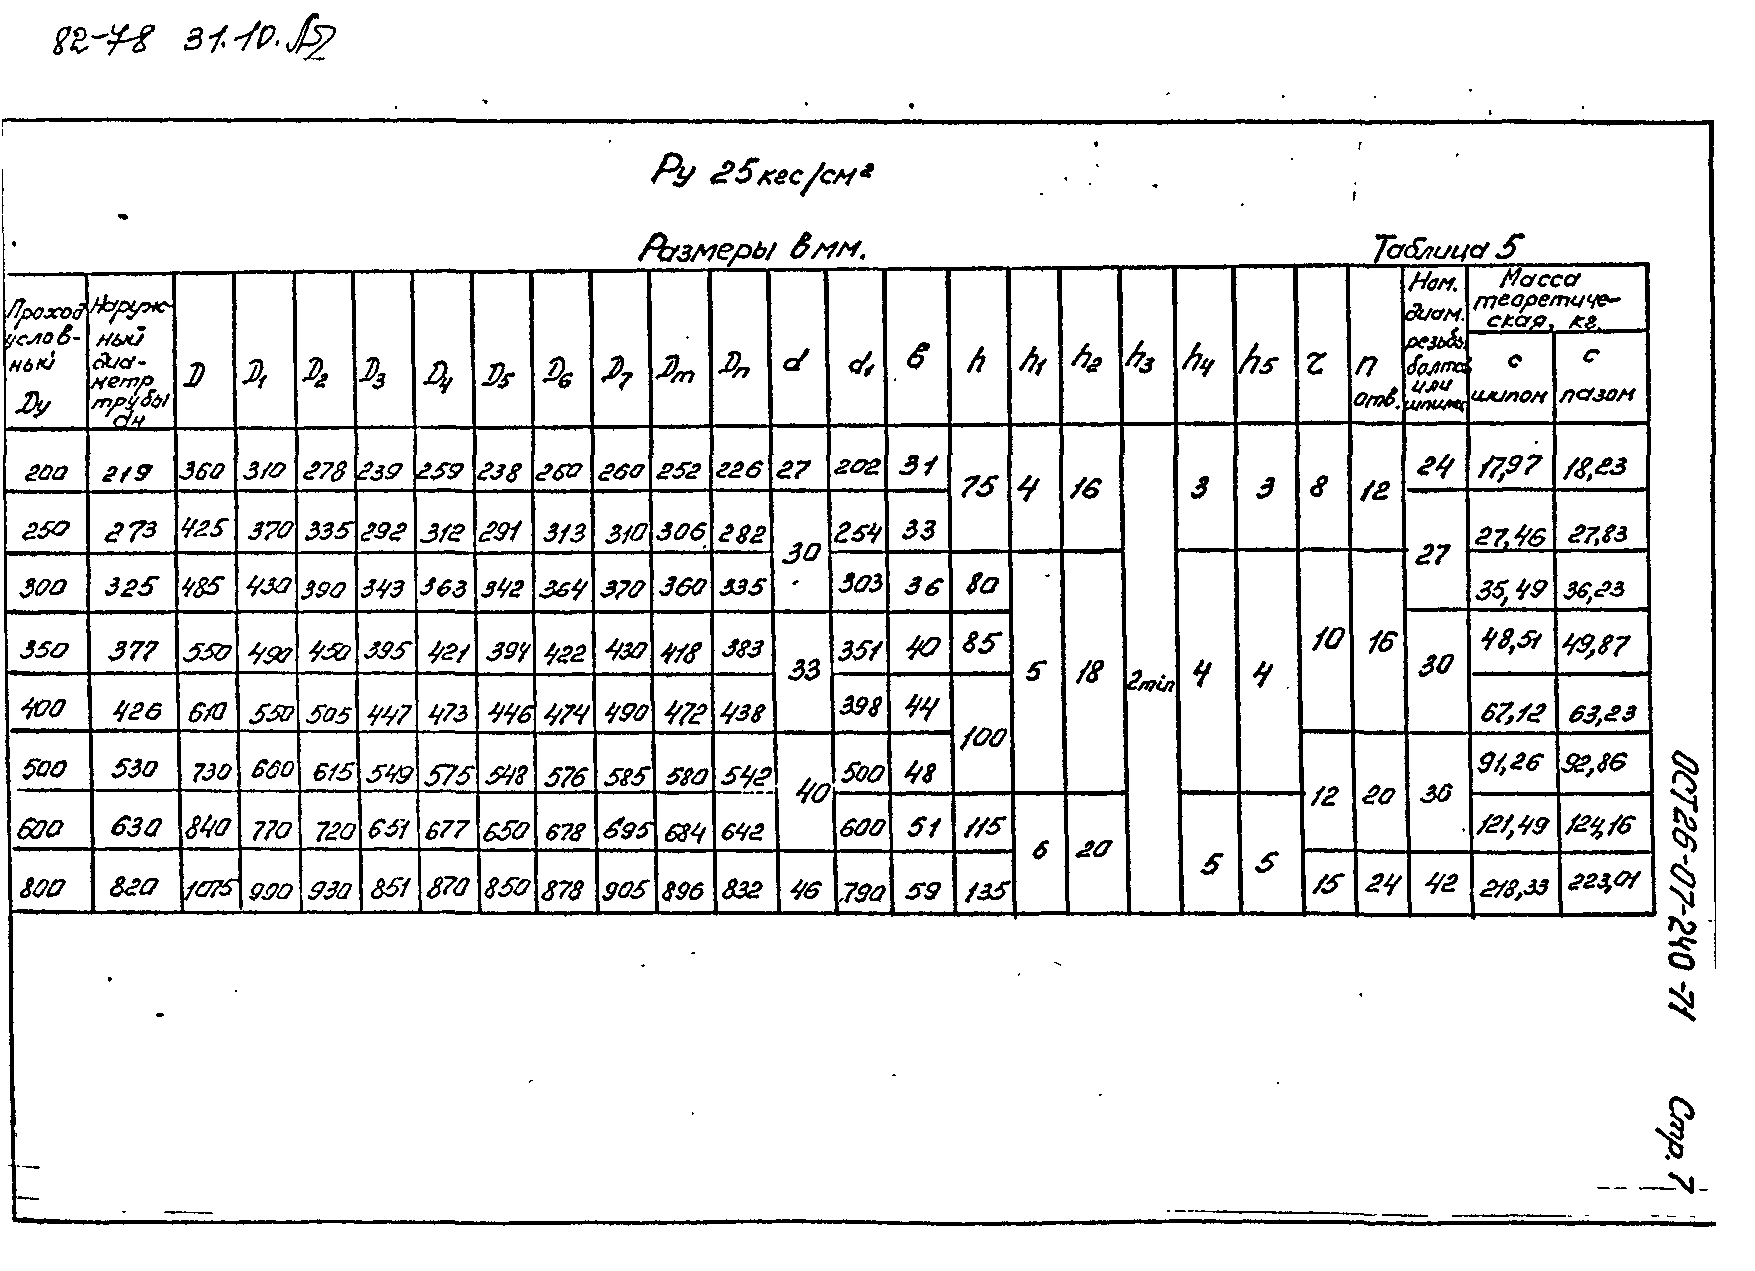 82-78 31.10.
Ру 25 кгс/см²
Размеры в мм. Таблица 5
Проход условный Ду | Наружный диаметр трубы dн | D | D1 | D2 | D3 | D4 | D5 | D6 | D7 | Dm | Dп | d | d1 | в | h | h1 | h2 | h3 | h4 | h5 | r | n отв. | Ном. диам. резьбы болта или шпильки | Масса теоретическая, кг. с шипом | с пазом
200 219 360 310 278 239 259 238 260 260 252 226 27 202 31 75 4 16 2min 3 3 8 12 24 17,97 18,23
250 273 425 370 335 292 312 291 313 310 306 282 30 254 33 27 27,46 27,83
300 325 485 430 390 343 363 342 364 370 360 335 303 36 80 5 18 4 4 10 16 35,49 36,23
350 377 550 490 450 395 421 394 422 430 418 383 33 351 40 85 30 48,51 49,87
400 426 610 550 505 447 473 446 474 490 472 438 398 44 100 67,12 63,23
500 530 730 660 615 549 575 548 576 585 580 542 40 500 48 12 20 36 91,26 92,86
600 630 840 770 720 651 677 650 678 695 684 642 600 51 115 6 20 5 5 121,49 124,16
800 820 1075 990 930 851 870 850 878 905 896 832 46 790 59 135 15 24 42 218,33 223,01
ОСТ 26-07-240-71 Стр. 7